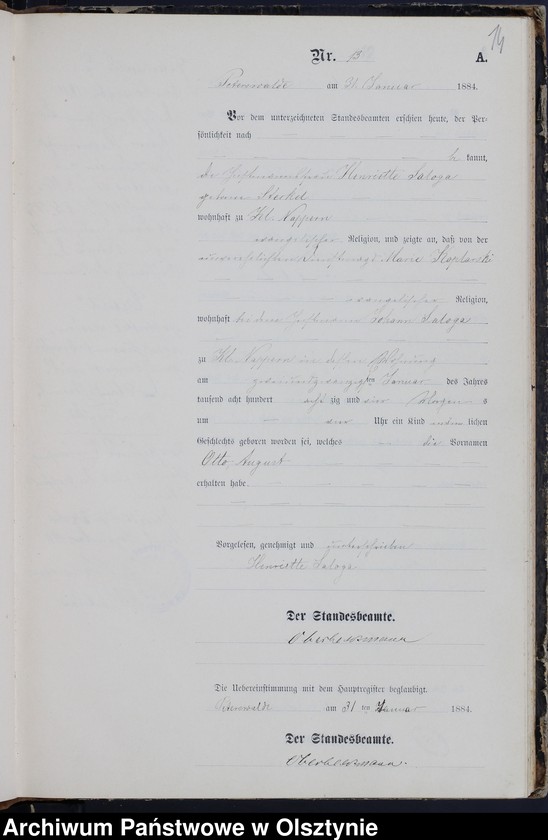 14
Nr. 15 A.
Peterswalde am 31 Januar 1884.
Vor dem unterzeichneten Standesbeamten erschien heute, der Per-
sönlichkeit nach
be kannt,
die Henriette Saloga
geborene Sterkel
wohnhaft zu Kl. Nappern
evangelischer Religion, und zeigte an, daß von der
unverehelichten Dienstmagd Marie
evangelischer Religion,
wohnhaft bei dem Johann Saloga
zu Kl. Nappern in dessen Wohnung
am ten Januar des Jahres
tausend acht hundert acht zig und vier Morgen s
um vier Uhr ein Kind männ lichen
Geschlechts geboren worden sei, welches die Vornamen
Otto, August
erhalten habe
Vorgelesen, genehmigt und unterschrieben
Henriette Saloga
Der Standesbeamte.
Die Uebereinstimmung mit dem Hauptregister beglaubigt.
Peterswalde am 31 ten Januar 1884.
Der Standesbeamte.
Archiwum Państwowe w Olsztynie